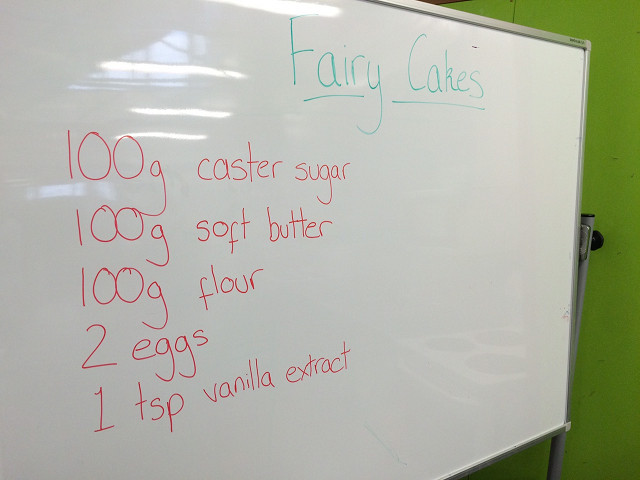 Fairy Cakes
100g caster sugar
100g soft butter
100g flour
2 eggs
1 tsp vanilla extract